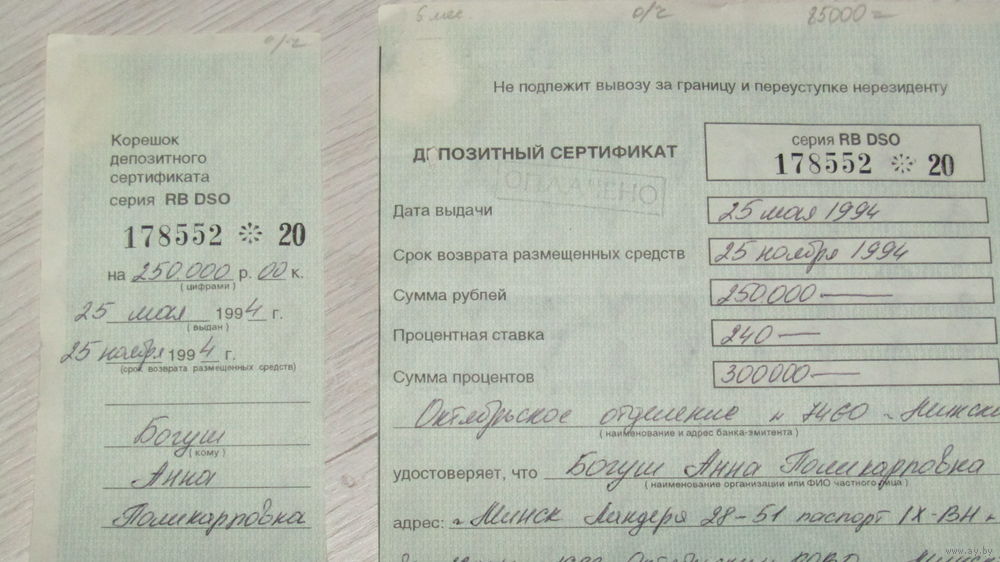 о/ч
Корешок
депозитного
сертификата
серия RB DSO
178552 20
на 250.000 р. 00 к.
( цифрами )
25 мая 1994 г.
( выдан )
25 ноября 1994 г.
(срок возврата размещенных средств)
Богуш
( кому )
Анна
Поликарповна
6 мес. о/ч 85000=
Не подлежит вывозу за границу и переуступке нерезиденту
ДЕПОЗИТНЫЙ СЕРТИФИКАТ
серия RB DSO
178552 20
ОПЛАЧЕНО
Дата выдачи 25 мая 1994
Срок возврата размещенных средств 25 ноября 1994
Сумма рублей 250.000 —
Процентная ставка 240 —
Сумма процентов 300000 —
Октябрьское отделение н 7460 г. Минска
( наименование и адрес банка-эмитента )
удостоверяет, что Богуш Анна Поликарповна
( наименование организации или ФИО частного лица )
адрес: г. Минск 28-51 паспорт IX-ВН
www.ay.by